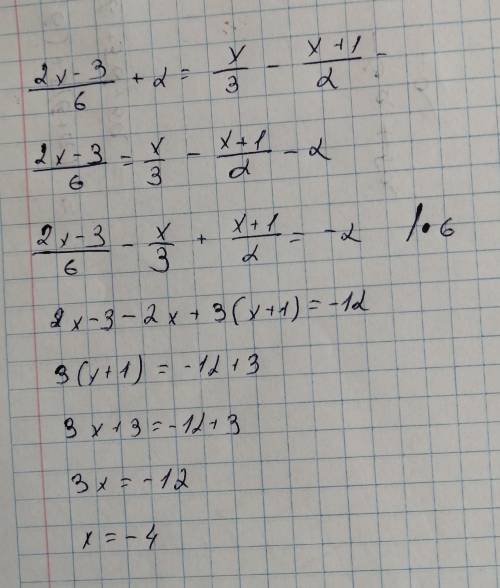 (2x-3)/6 + 2 = x/3 - (x+1)/2 -
(2x-3)/6 = x/3 - (x+1)/2 - 2
(2x-3)/6 - x/3 + (x+1)/2 = -2 /·6
2x-3-2x+3(x+1)=-12
3(x+1) = -12+3
3x+3=-12+3
3x=-12
x=-4